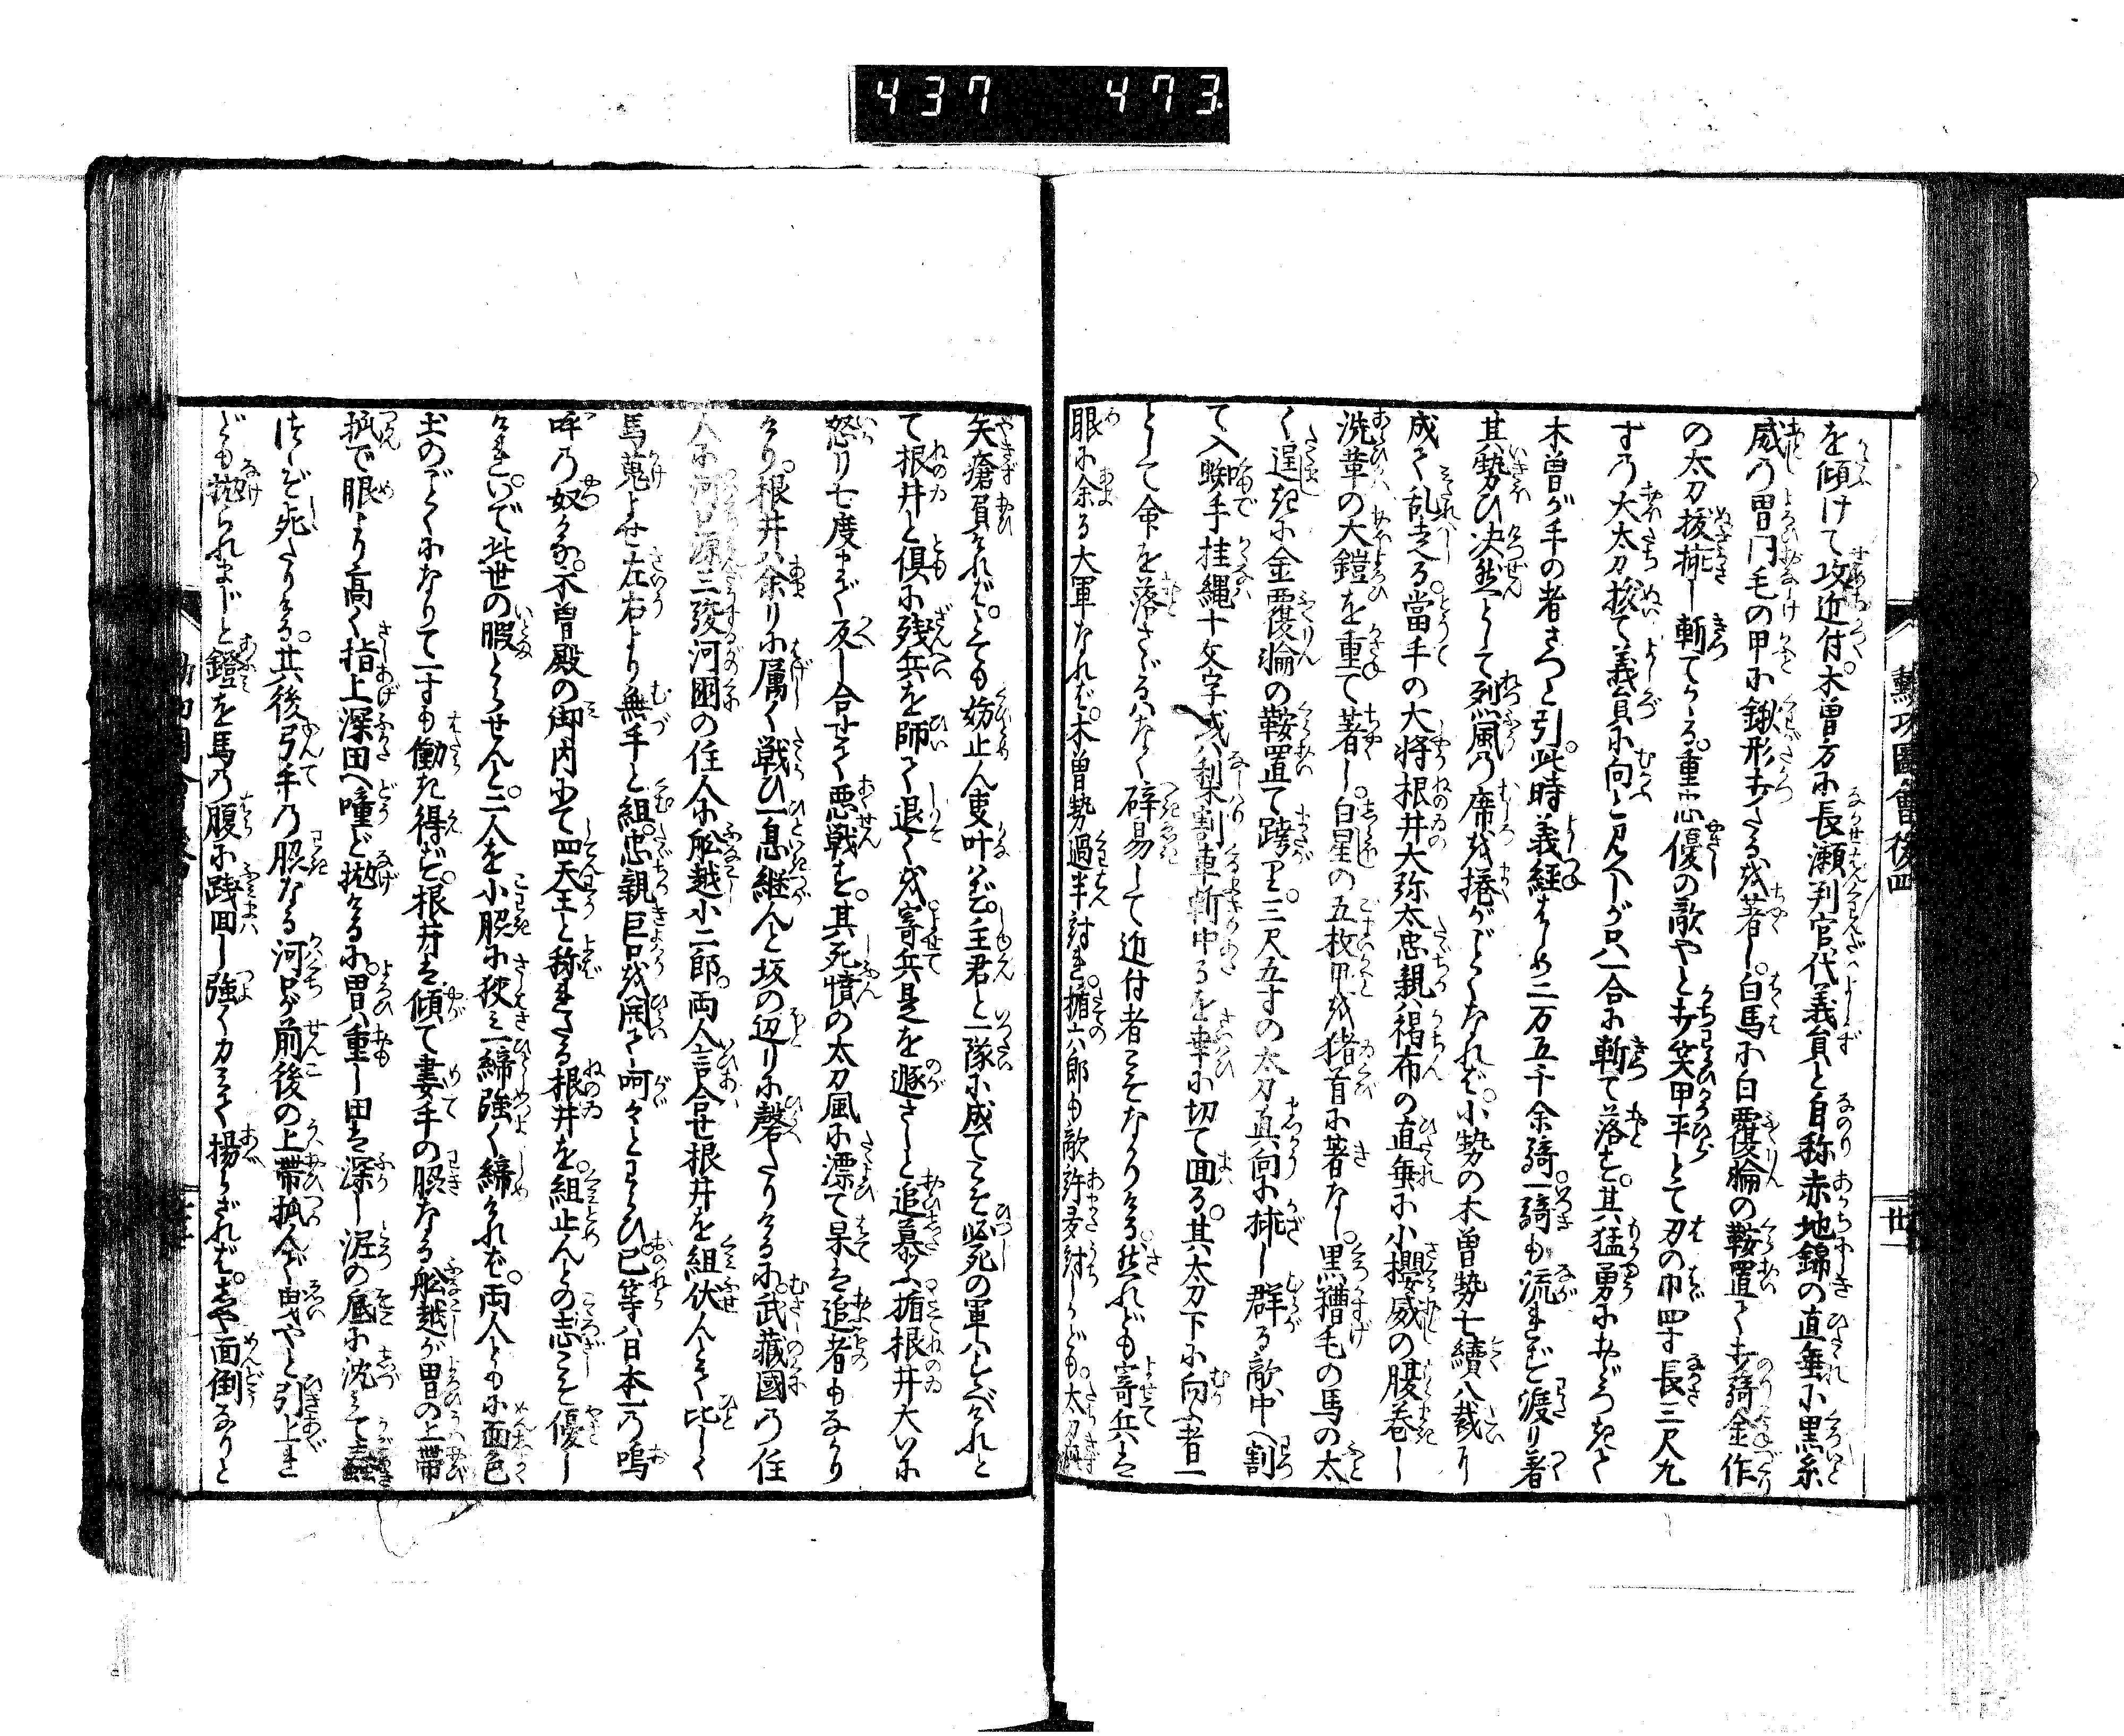 437 473
勲功圖會後四
廿一
を傾けて攻近付。木曽方に長瀬判官代義員と自称赤地錦の直垂に黒糸
威の冑同毛の甲に鍬形打たるを著し。白馬に白覆輪の鞍置て打騎金作
の太刀抜挿し斬てかゝる。重忠優の敵やと打笑甲平とて刃の巾四寸長三尺九
寸の大太刀抜て義員に向と見へしが只一合に斬て落す。其猛勇におどろきて
木曽が手の者さつと引。此時義経はじめ二万五千余騎。一騎も流れず渡り著
其勢ひ决然として列風の席を捲がごとくなれば。小勢の木曽勢七續八裁り
成て乱走る。當手の大将根井大弥太忠親ハ褐布の直垂に小櫻威の腹巻し
洗革の大鎧を重て著し。白星の五枚甲を猪首に著なし。黒糟毛の馬の太
く逞きに金覆輪の鞍置て跨り。三尺五寸の太刀真向に挿し群る敵中へ割
て入蜘手挂縄十文字或ハ梨割車斬中るを幸に切て回る。其太刀下に向ふ者一
として命を落さゞるハなく辟易して近付者こそなかりける。然れども寄兵は
眼に余る大軍なれば。木曽勢過半討れ。楯六郎も敵許多討しかども。太刀疵
矢瘡負ければ。とても妨止ん事叶ハず。主君と一隊に成てこそ必死の軍ハすべけれと
て根井と倶に残兵を師て退くを寄兵是を遯さじと追慕ふ。楯根井大いに
怒り七度まで反し合せて悪戦す。其死憤の太刀風に漂て果は追者もなかり
けり。根井ハ余りに厲く戦ひ一息継んと坂の辺りに磬たりけるに。武藏國の任
人に河口源三駿河國の任人に舩越小二郎。両人言合せ根井を組伏んとて比しく
馬蒐よせ左右より無手と組。忠親巨口を開て呵々とわらひ。已等ハ日本一の嗚
呼の奴かな。木曽殿の御内にて四天王と称れたる根井を。組止んとの志こそ優し
けれ。いで此世の暇とらせんと。二人を小脇に狹み一締強く締ければ。両人ともに面色
土のごとくになりて一寸も働き得ず。根井は傾て妻手の脇なる舩越が冑の上帯
抓で眼より高く指上深田へ噇ど抛けるに。冑ハ重し田は深し泥の底に沈みて蠢
ず死たりける。其後弓手の脇なる河口が前後の上帯抓んで曳やと引上れ
ども抛られまじと鐙を馬の腹に践回し強く力みて揚らざれば。しや面倒なりと